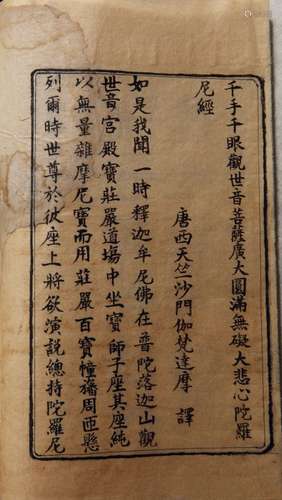 千手千眼觀世音菩薩廣大圓滿無礙大悲心陀羅
尼經
唐西天竺沙門伽梵達摩 譯
如是我聞一時釋迦牟尼佛在普陀落迦山觀
世音宮殿寶莊嚴道場中坐寶師子座其座純
以無量雜摩尼寶而用莊嚴百寶幢旛周匝懸
列爾時世尊於彼座上將欲演說總持陀羅尼